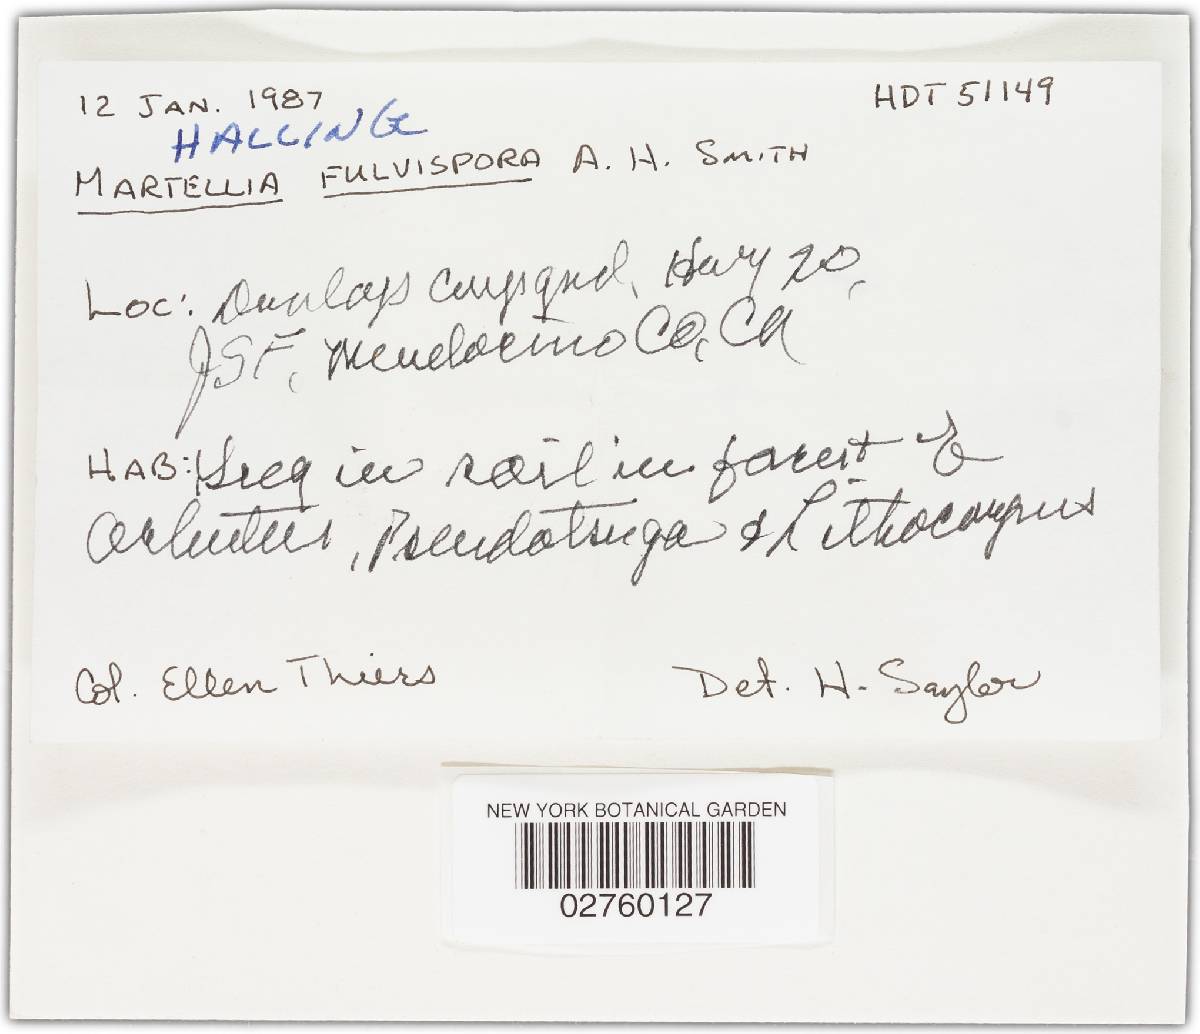 12 JAN. 1987
HDT 51149
HALLING
MARTELLIA FULVISPORA A. H. SMITH
LOC: Dunlap Cmpgrnd, Hwy 20,
JSF, Mendocino CO, CA
HAB: Greg in soil in forest of
Arbutus, Pseudotsuga & Lithocarpus
Col. Ellen Thiers
Det. H. Saylor
NEW YORK BOTANICAL GARDEN
02760127